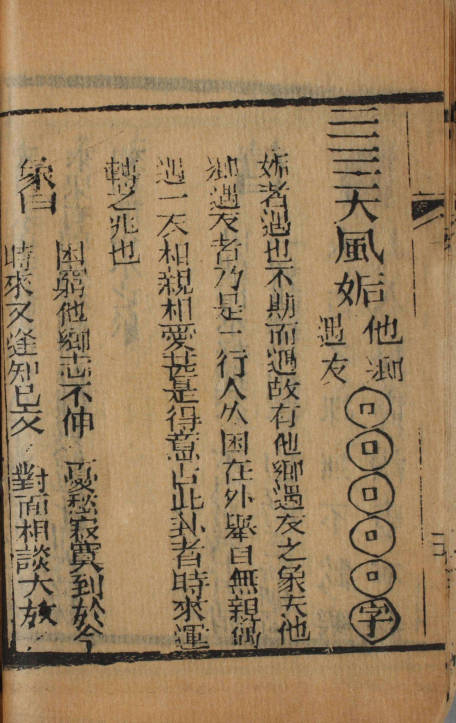 天風姤
他鄉
遇友
字
姤者遇也不期而遇故有他鄉遇友之象夫他
鄉遇友者乃是一行人久困在外舉目無親偶
遇一友相親相愛甚是得意占此卦者時來運
轉之兆也
象曰
困窮他鄉志不伸 憂愁寂寞到於今
時來又逢知己友 對面相談大放